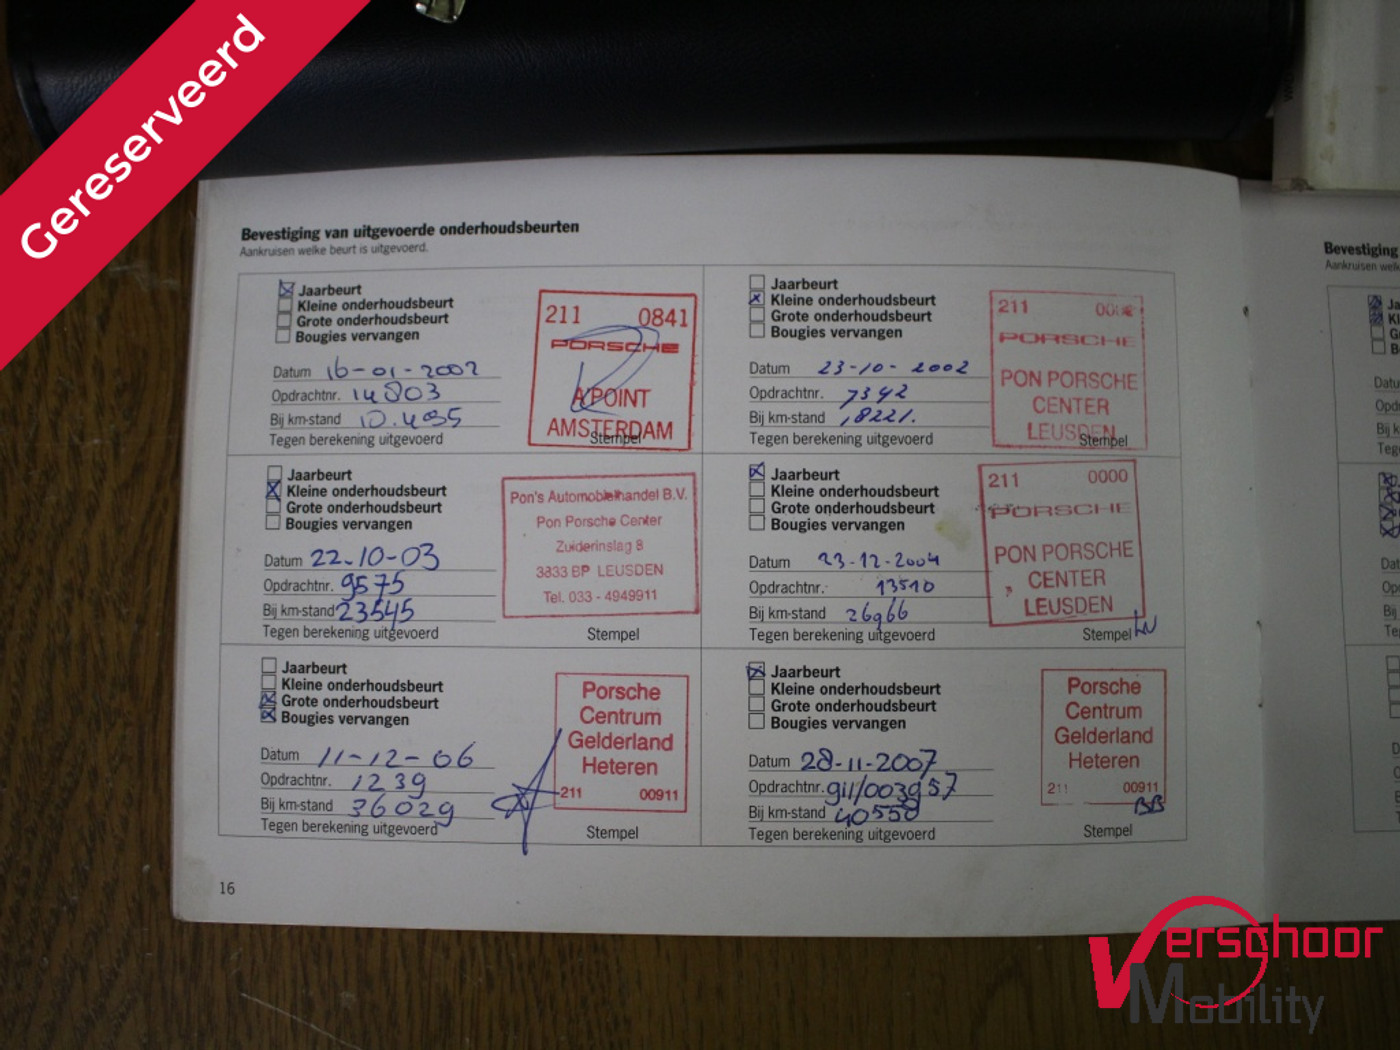 Gereserveerd
Bevestiging van uitgevoerde onderhoudsbeurten
Aankruisen welke beurt is uitgevoerd.
Jaarbeurt
Kleine onderhoudsbeurt
Grote onderhoudsbeurt
Bougies vervangen
Datum 16-01-2002
Opdrachtnr. 14803
Bij km-stand 10.495
Tegen berekening uitgevoerd
211 0841
PORSCHE
APOINT
AMSTERDAM
Stempel
Jaarbeurt
Kleine onderhoudsbeurt
Grote onderhoudsbeurt
Bougies vervangen
Datum 23-10-2002
Opdrachtnr. 7342
Bij km-stand 18221.
Tegen berekening uitgevoerd
211
PORSCHE
PON PORSCHE
CENTER
LEUSDEN
Stempel
Jaarbeurt
Kleine onderhoudsbeurt
Grote onderhoudsbeurt
Bougies vervangen
Datum 22-10-03
Opdrachtnr. 9575
Bij km-stand 23545
Tegen berekening uitgevoerd
Pon's Automobielhandel B.V.
Pon Porsche Center
Zuiderinslag 8
3833 BP LEUSDEN
Tel. 033 - 4949911
Stempel
Jaarbeurt
Kleine onderhoudsbeurt
Grote onderhoudsbeurt
Bougies vervangen
Datum 23-12-2004
Opdrachtnr. 13510
Bij km-stand 26966
Tegen berekening uitgevoerd
211 0000
PORSCHE
PON PORSCHE
CENTER
LEUSDEN
Stempel
Jaarbeurt
Kleine onderhoudsbeurt
Grote onderhoudsbeurt
Bougies vervangen
Datum 11-12-06
Opdrachtnr. 1239
Bij km-stand 36029
Tegen berekening uitgevoerd
Porsche
Centrum
Gelderland
Heteren
211 00911
Stempel
Jaarbeurt
Kleine onderhoudsbeurt
Grote onderhoudsbeurt
Bougies vervangen
Datum 28-11-2007
Opdrachtnr. 911/003957
Bij km-stand 40550
Tegen berekening uitgevoerd
Porsche
Centrum
Gelderland
Heteren
211 00911
BB
Stempel
16
Bevestiging
Verschoor
Mobility